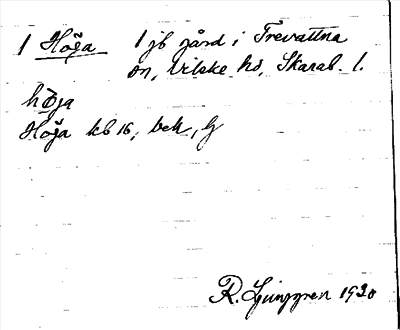 1 Höga 1 jb gård i Trevattna
sn, Vilske hd, Skarab. l.
höja
Höga kb 16, bek, G
R. Ljunggren 1930